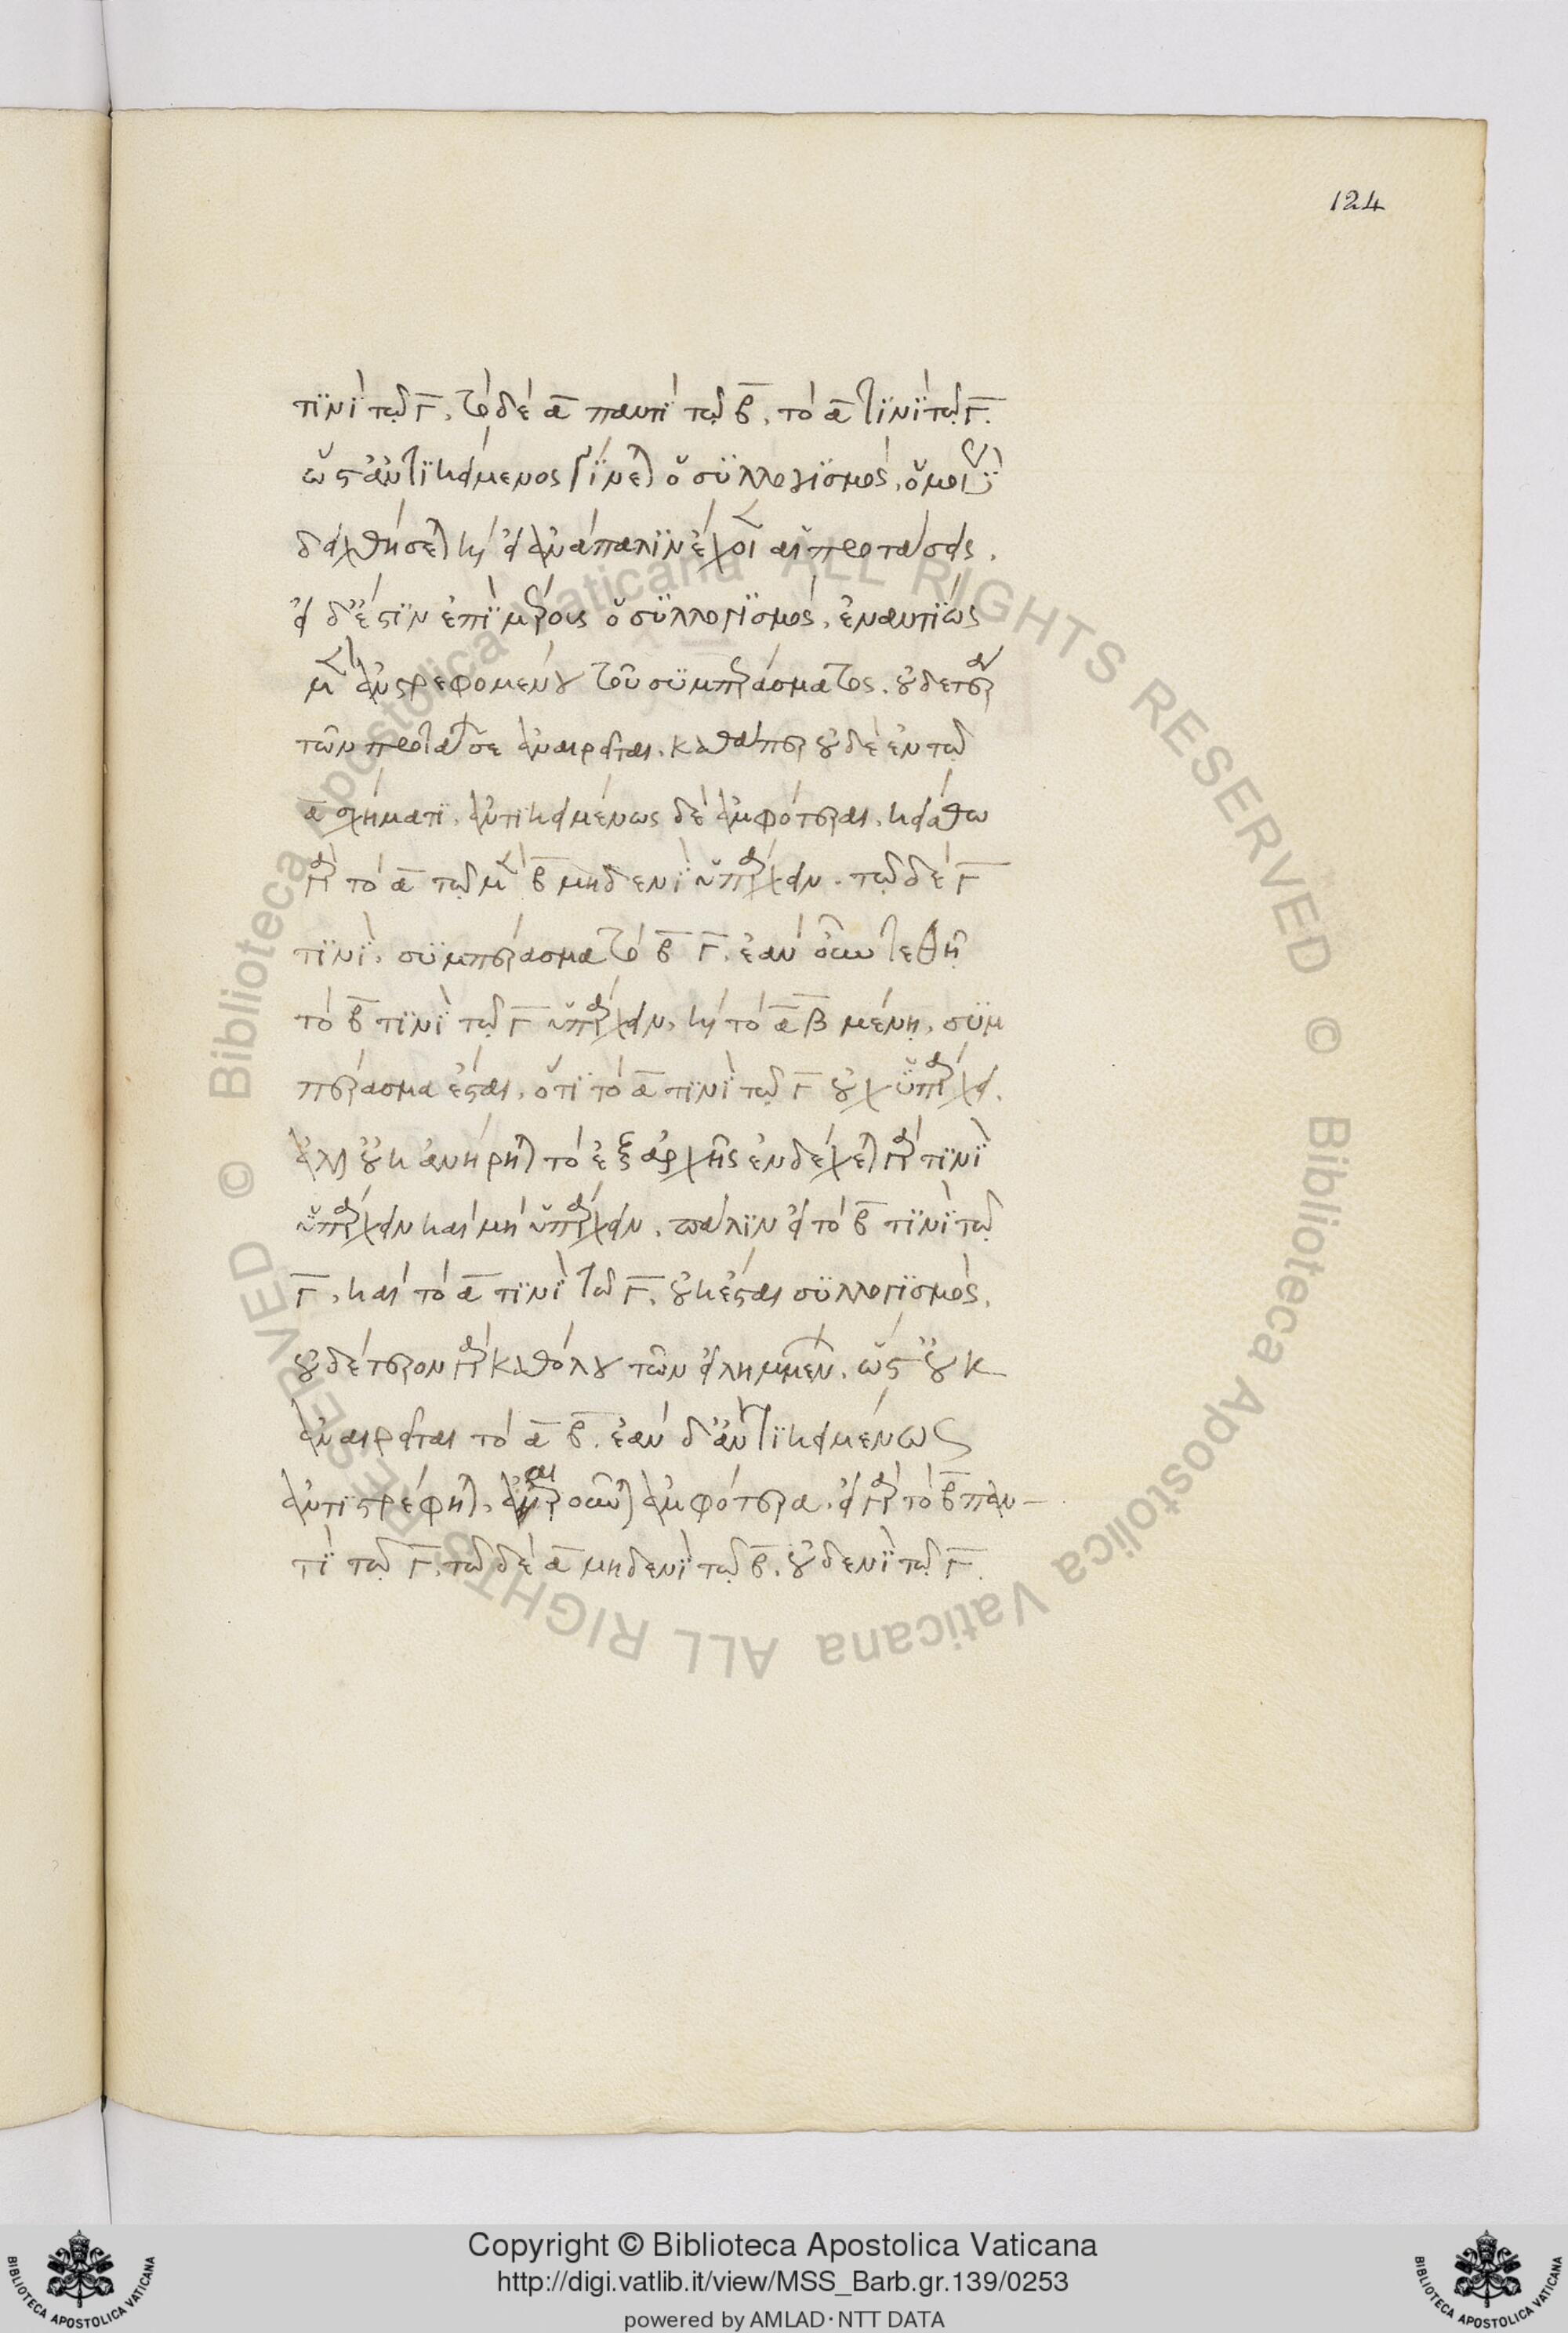 124
τινὶ τῷ Γ, τὸ δὲ α παντὶ τῷ β, τὸ α τινὶ τῷ Γ.
ὥστ' ἀντικείμενος γίνεται ὁ συλλογισμός. ὁμοίως
δειχθήσεται καὶ εἰ ἀνάπαλιν ἔχοιεν αἱ προτάσεις.
εἰ δ' ἔστιν ἐπὶ μέρους ὁ συλλογισμὸς, ἐναντίως
μὲν ἀντιστρεφομένου τοῦ συμπεράσματος, οὐδετέρα
τῶν προτάσεων ἀναιρεῖται, καθάπερ οὐδὲ ἐν τῷ
α σχήματι, ἀντικειμένως δὲ ἀμφότεραι. κείσθω
γὰρ τὸ α τῷ μὲν β μηδενὶ ὑπάρχειν. τῷ δὲ Γ
τινὶ, συμπέρασμα τὸ β Γ. ἐὰν οὖν τεθῇ
τὸ β τινὶ τῷ Γ ὑπάρχειν, καὶ τὸ α β μένῃ, συμ
πέρασμα ἔσται, ὅτι τὸ α τινὶ τῷ Γ οὐχ ὑπάρχει.
ἀλλ' οὐκ ἀνῄρηται τὸ ἐξ ἀρχῆς ἐνδέχεται γὰρ τινὶ
ὑπάρχειν καὶ μὴ ὑπάρχειν. πάλιν εἰ τὸ β τινὶ τῷ
Γ, καὶ τὸ α τινὶ τῷ Γ, οὐκ ἔσται συλλογισμὸς.
οὐδέτερον γὰρ καθόλου τῶν εἰλημμένων. ὥστ' οὐκ
ἀναιρεῖται τὸ α β. ἐὰν δ' ἀντικειμένως
ἀντιστρέφηται, ἀναιροῦνται ἀμφότερα. εἰ γὰρ τὸ β παν-
τὶ τῷ Γ, τῷ δὲ α μηδενὶ τῷ β, οὐδενὶ τῷ Γ.
Copyright © Biblioteca Apostolica Vaticana
http://digi.vatlib.it/view/MSS_Barb.gr.139/0253
powered by AMLAD · NTT DATA